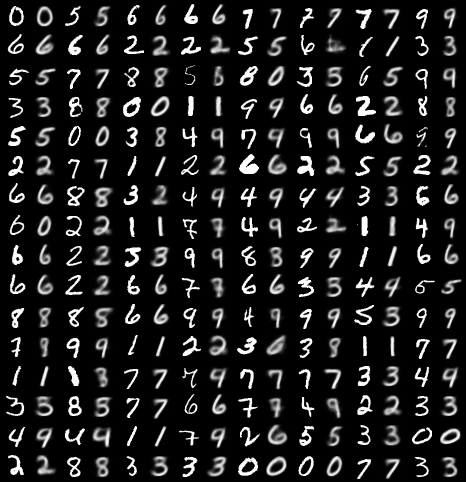 0 0 5 5 6 6 6 6 7 7 7 7 7 7 9 9
6 6 6 6 2 2 2 2 5 5 6 1 1 3 3
5 5 7 7 8 8 5 8 8 0 3 5 6 5 9 9
3 3 8 8 0 0 1 1 9 9 6 6 2 2 8 8
5 5 0 0 3 8 4 9 7 9 9 9 6 6 9 9
2 2 7 7 1 1 2 2 6 6 2 2 5 5 2 2
6 6 8 8 3 2 4 9 4 9 4 4 3 3 6 6
0 0 2 2 1 1 7 7 4 9 2 2 1 1 4 9
6 6 2 2 3 3 9 9 8 3 9 9 1 1 6 6
6 6 2 2 6 6 7 7 6 6 3 3 4 4 5 5
8 8 8 5 6 6 9 9 4 9 9 9 5 3 9 9
7 9 9 9 1 1 2 2 3 6 3 8 1 1 7 7
1 1 1 3 7 7 7 9 7 7 7 7 3 3 4 9
3 5 8 5 7 7 6 6 7 7 4 9 2 2 3 3
4 9 4 9 1 1 7 9 2 6 5 5 3 3 0 0
2 2 8 8 3 3 3 3 0 0 0 0 7 7 3 3